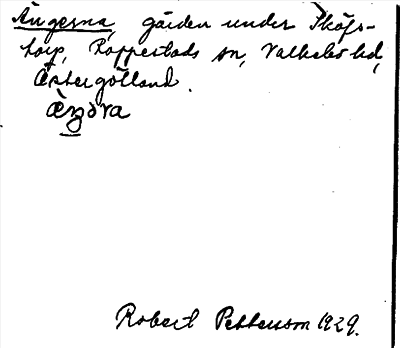 Ängerna, gården under Skäfs-
torp, Rappestads sn, Valkebo hd,
Östergötland.
Robert Pettersson 1929.